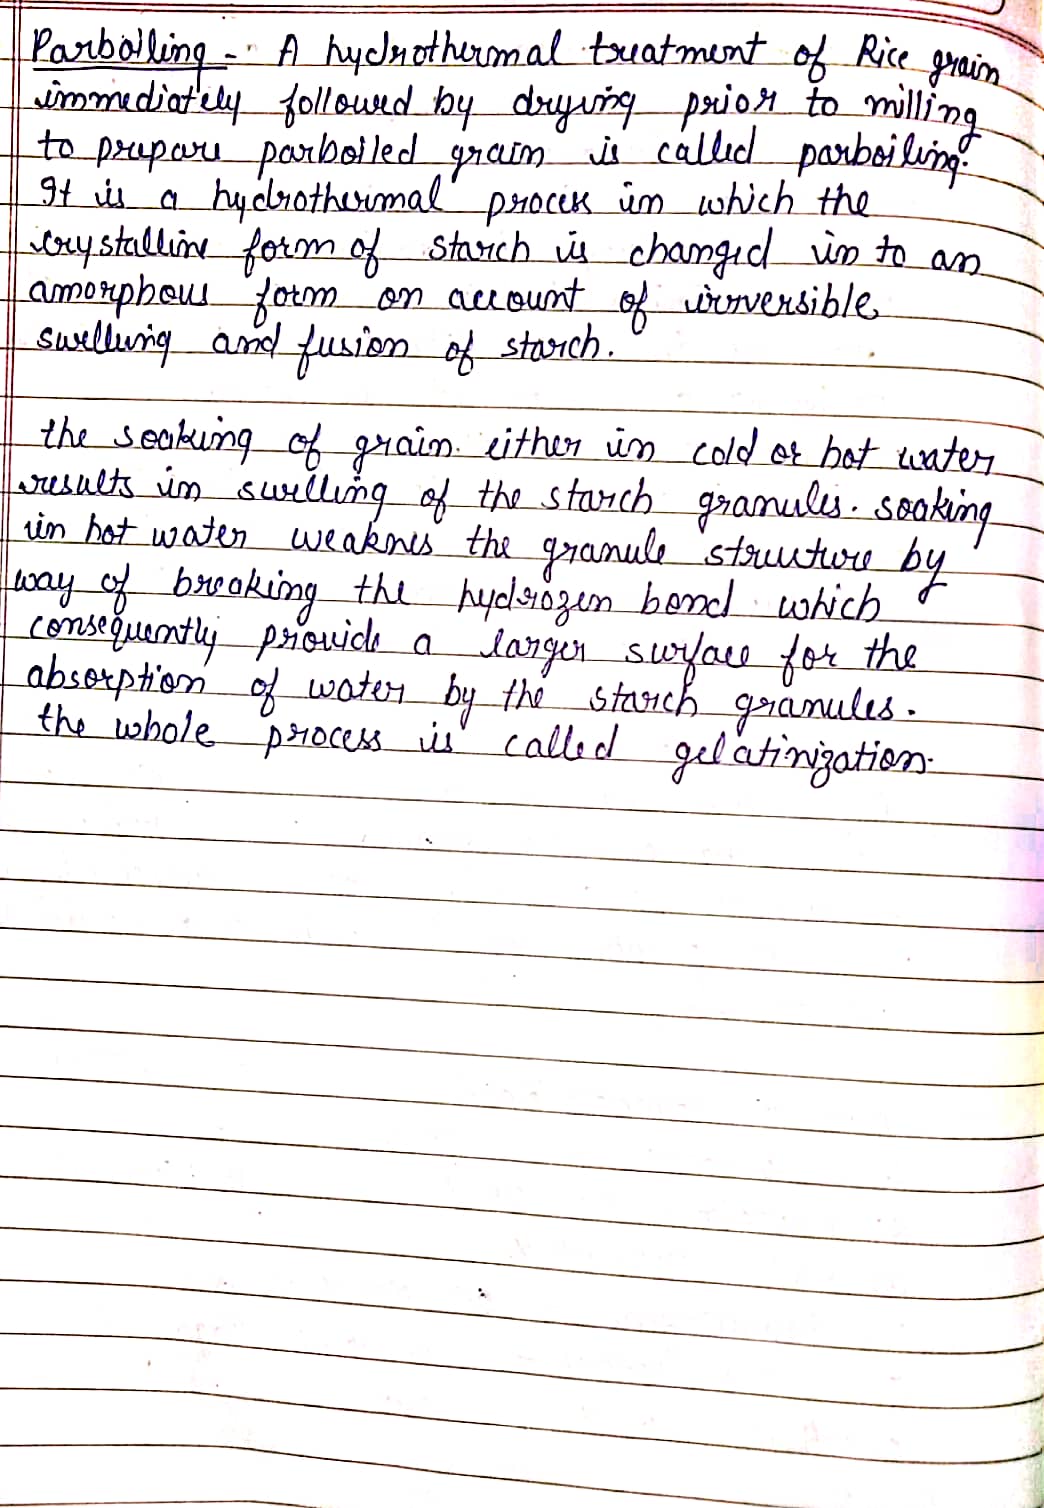 Parboiling - A hydrothermal treatment of Rice grain
immediately followed by drying prior to milling
to prepare parboiled grain is called parboiling.
It is a hydrothermal process in which the
crystalline form of starch is changed in to an
amorphous form on account of irreversible
swelling and fusion of starch.
the soaking of grain either in cold or hot water
results in swelling of the starch granules. soaking
in hot water weaknes the granule structure by
way of breaking the hydrogen bond which
consequently provide a larger surface for the
absorption of water by the starch granules.
the whole process is called gelatinization.